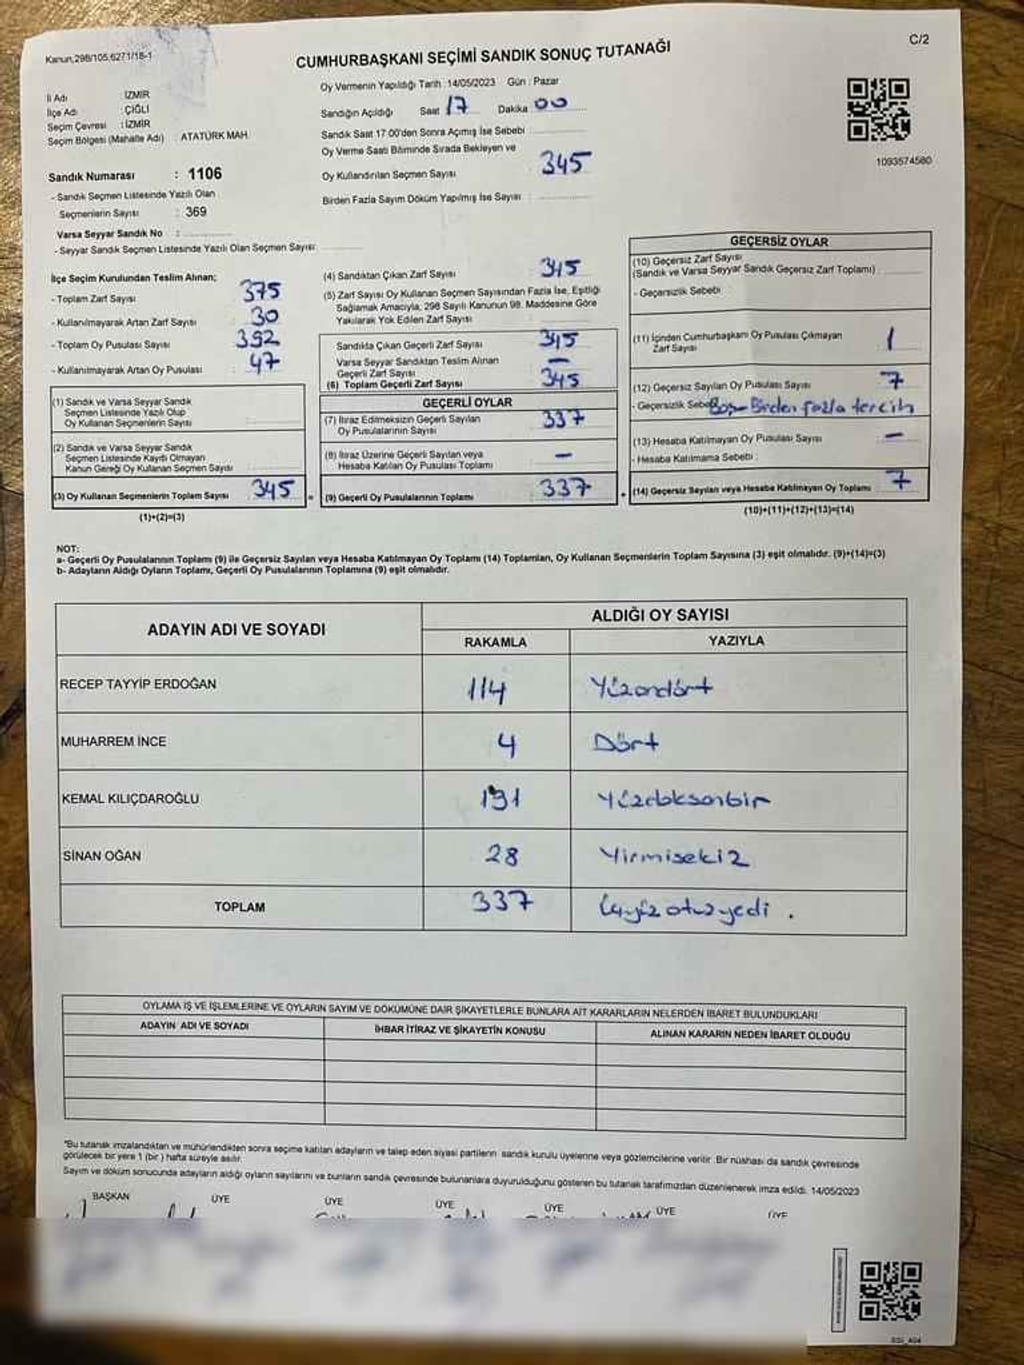 Kanun,298/105;6271/18-1
C/2
CUMHURBAŞKANI SEÇİMİ SANDIK SONUÇ TUTANAĞI
Oy Vermenin Yapıldığı Tarih : 14/05/2023 Gün : Pazar
İl Adı : İZMİR
İlçe Adı : ÇİĞLİ
Seçim Çevresi : İZMİR
Seçim Bölgesi (Mahalle Adı) : ATATÜRK MAH.
Sandığın Açıldığı Saat 17 Dakika 00
Sandık Saat 17:00'den Sonra Açımış İse Sebebi
Oy Verme Saati Bitiminde Sırada Bekleyen ve
Oy Kullandırılan Seçmen Sayısı 345
Birden Fazla Sayım Döküm Yapılmış İse Sayısı :
1093574580
Sandık Numarası : 1106
- Sandık Seçmen Listesinde Yazılı Olan
Seçmenlerin Sayısı : 369
Varsa Seyyar Sandık No :
- Seyyar Sandık Seçmen Listesinde Yazılı Olan Seçmen Sayısı:
İlçe Seçim Kurulundan Teslim Alınan;
- Toplam Zarf Sayısı 375
- Kullanılmayarak Artan Zarf Sayısı 30
- Toplam Oy Pusulası Sayısı 392
- Kullanılmayarak Artan Oy Pusulası 47
(1) Sandık ve Varsa Seyyar Sandık
Seçmen Listesinde Yazılı Olup
Oy Kullanan Seçmenlerin Sayısı
(2) Sandık ve Varsa Seyyar Sandık
Seçmen Listesinde Kayıtlı Olmayan
Kanun Gereği Oy Kullanan Seçmen Sayısı
(3) Oy Kullanan Seçmenlerin Toplam Sayısı 345 =
(1)+(2)=(3)
(4) Sandıktan Çıkan Zarf Sayısı 345
(5) Zarf Sayısı Oy Kullanan Seçmen Sayısından Fazla İse, Eşitliği
Sağlamak Amacıyla, 298 Sayılı Kanunun 98. Maddesine Göre
Yakılarak Yok Edilen Zarf Sayısı
Sandıkta Çıkan Geçerli Zarf Sayısı 345
Varsa Seyyar Sandıktan Teslim Alınan
Geçerli Zarf Sayısı —
(6) Toplam Geçerli Zarf Sayısı 345
GEÇERLİ OYLAR
(7) İtiraz Edilmeksizin Geçerli Sayılan
Oy Pusulalarının Sayısı 337
(8) İtiraz Üzerine Geçerli Sayılan veya
Hesaba Katılan Oy Pusulası Toplamı —
(9) Geçerli Oy Pusulalarının Toplamı 337 +
GEÇERSİZ OYLAR
(10) Geçersiz Zarf Sayısı
(Sandık ve Varsa Seyyar Sandık Geçersiz Zarf Toplamı)
- Geçersizlik Sebebi :
(11) İçinden Cumhurbaşkanı Oy Pusulası Çıkmayan
Zarf Sayısı 1
(12) Geçersiz Sayılan Oy Pusulası Sayısı 7
- Geçersizlik Sebebi Boş - Birden fazla tercih
(13) Hesaba Katılmayan Oy Pusulası Sayısı —
- Hesaba Katılmama Sebebi :
(14) Geçersiz Sayılan veya Hesaba Katılmayan Oy Toplamı 7
(10)+(11)+(12)+(13)=(14)
NOT:
a- Geçerli Oy Pusulalarının Toplamı (9) ile Geçersiz Sayılan veya Hesaba Katılmayan Oy Toplamı (14) Toplamları, Oy Kullanan Seçmenlerin Toplam Sayısına (3) eşit olmalıdır. (9)+(14)=(3)
b- Adayların Aldığı Oyların Toplamı, Geçerli Oy Pusulalarının Toplamına (9) eşit olmalıdır.
ADAYIN ADI VE SOYADI ALDIĞI OY SAYISI
RAKAMLA YAZIYLA
RECEP TAYYİP ERDOĞAN 114 Yüzondört
MUHARREM İNCE 4 Dört
KEMAL KILIÇDAROĞLU 191 Yüzdoksanbir
SİNAN OĞAN 28 Yirmisekiz
TOPLAM 337 Üçyüzotuzyedi .
OYLAMA İŞ VE İŞLEMLERİNE VE OYLARIN SAYIM VE DÖKÜMÜNE DAİR ŞİKAYETLERLE BUNLARA AİT KARARLARIN NELERDEN İBARET BULUNDUKLARI
ADAYIN ADI VE SOYADI İHBAR İTİRAZ VE ŞİKAYETİN KONUSU ALINAN KARARIN NEDEN İBARET OLDUĞU
*Bu tutanak imzalandıktan ve mühürlendikten sonra seçime katılan adayların ve talep eden siyasi partilerin sandık kurulu üyelerine veya gözlemcilerine verilir. Bir nüshası da sandık çevresinde
görülecek bir yere 1 (bir) hafta süreyle asılır.
Sayım ve döküm sonucunda adayların aldığı oyların sayılarını ve bunların sandık çevresinde bulunanlara duyurulduğunu gösteren bu tutanak tarafımızdan düzenlenerek imza edildi. 14/05/2023
BAŞKAN ÜYE ÜYE ÜYE ÜYE ÜYE ÜYE